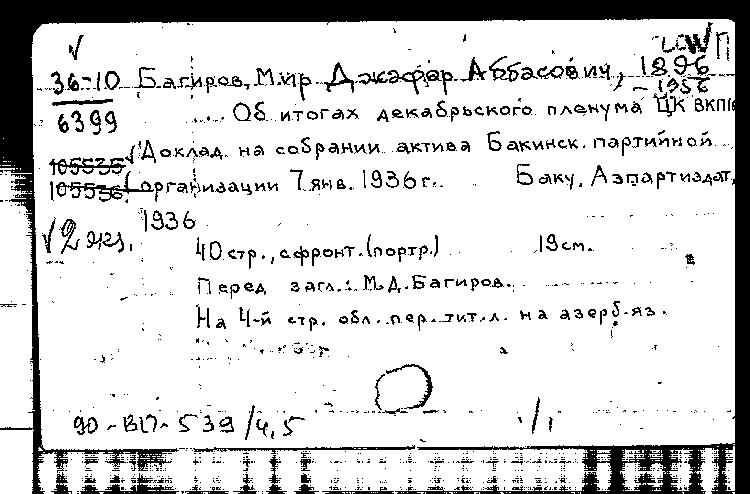 36-10 Багиров, Мир Джафар Аббасович, 1896
- 1956
6399 .... Об итогах декабрьского пленума ЦК ВКП(
105535 Доклад на собрании актива Бакинск. партийной
105536 организации 7 янв. 1936 г. Баку, Азпартиздат,
1936
2 экз.
40 стр., с фронт. (портр.) 19 см.
Перед загл.: М.Д. Багиров.
На 4-й стр. обл. пер. тит. л. на азерб. яз.
90-ВП-539/4,5